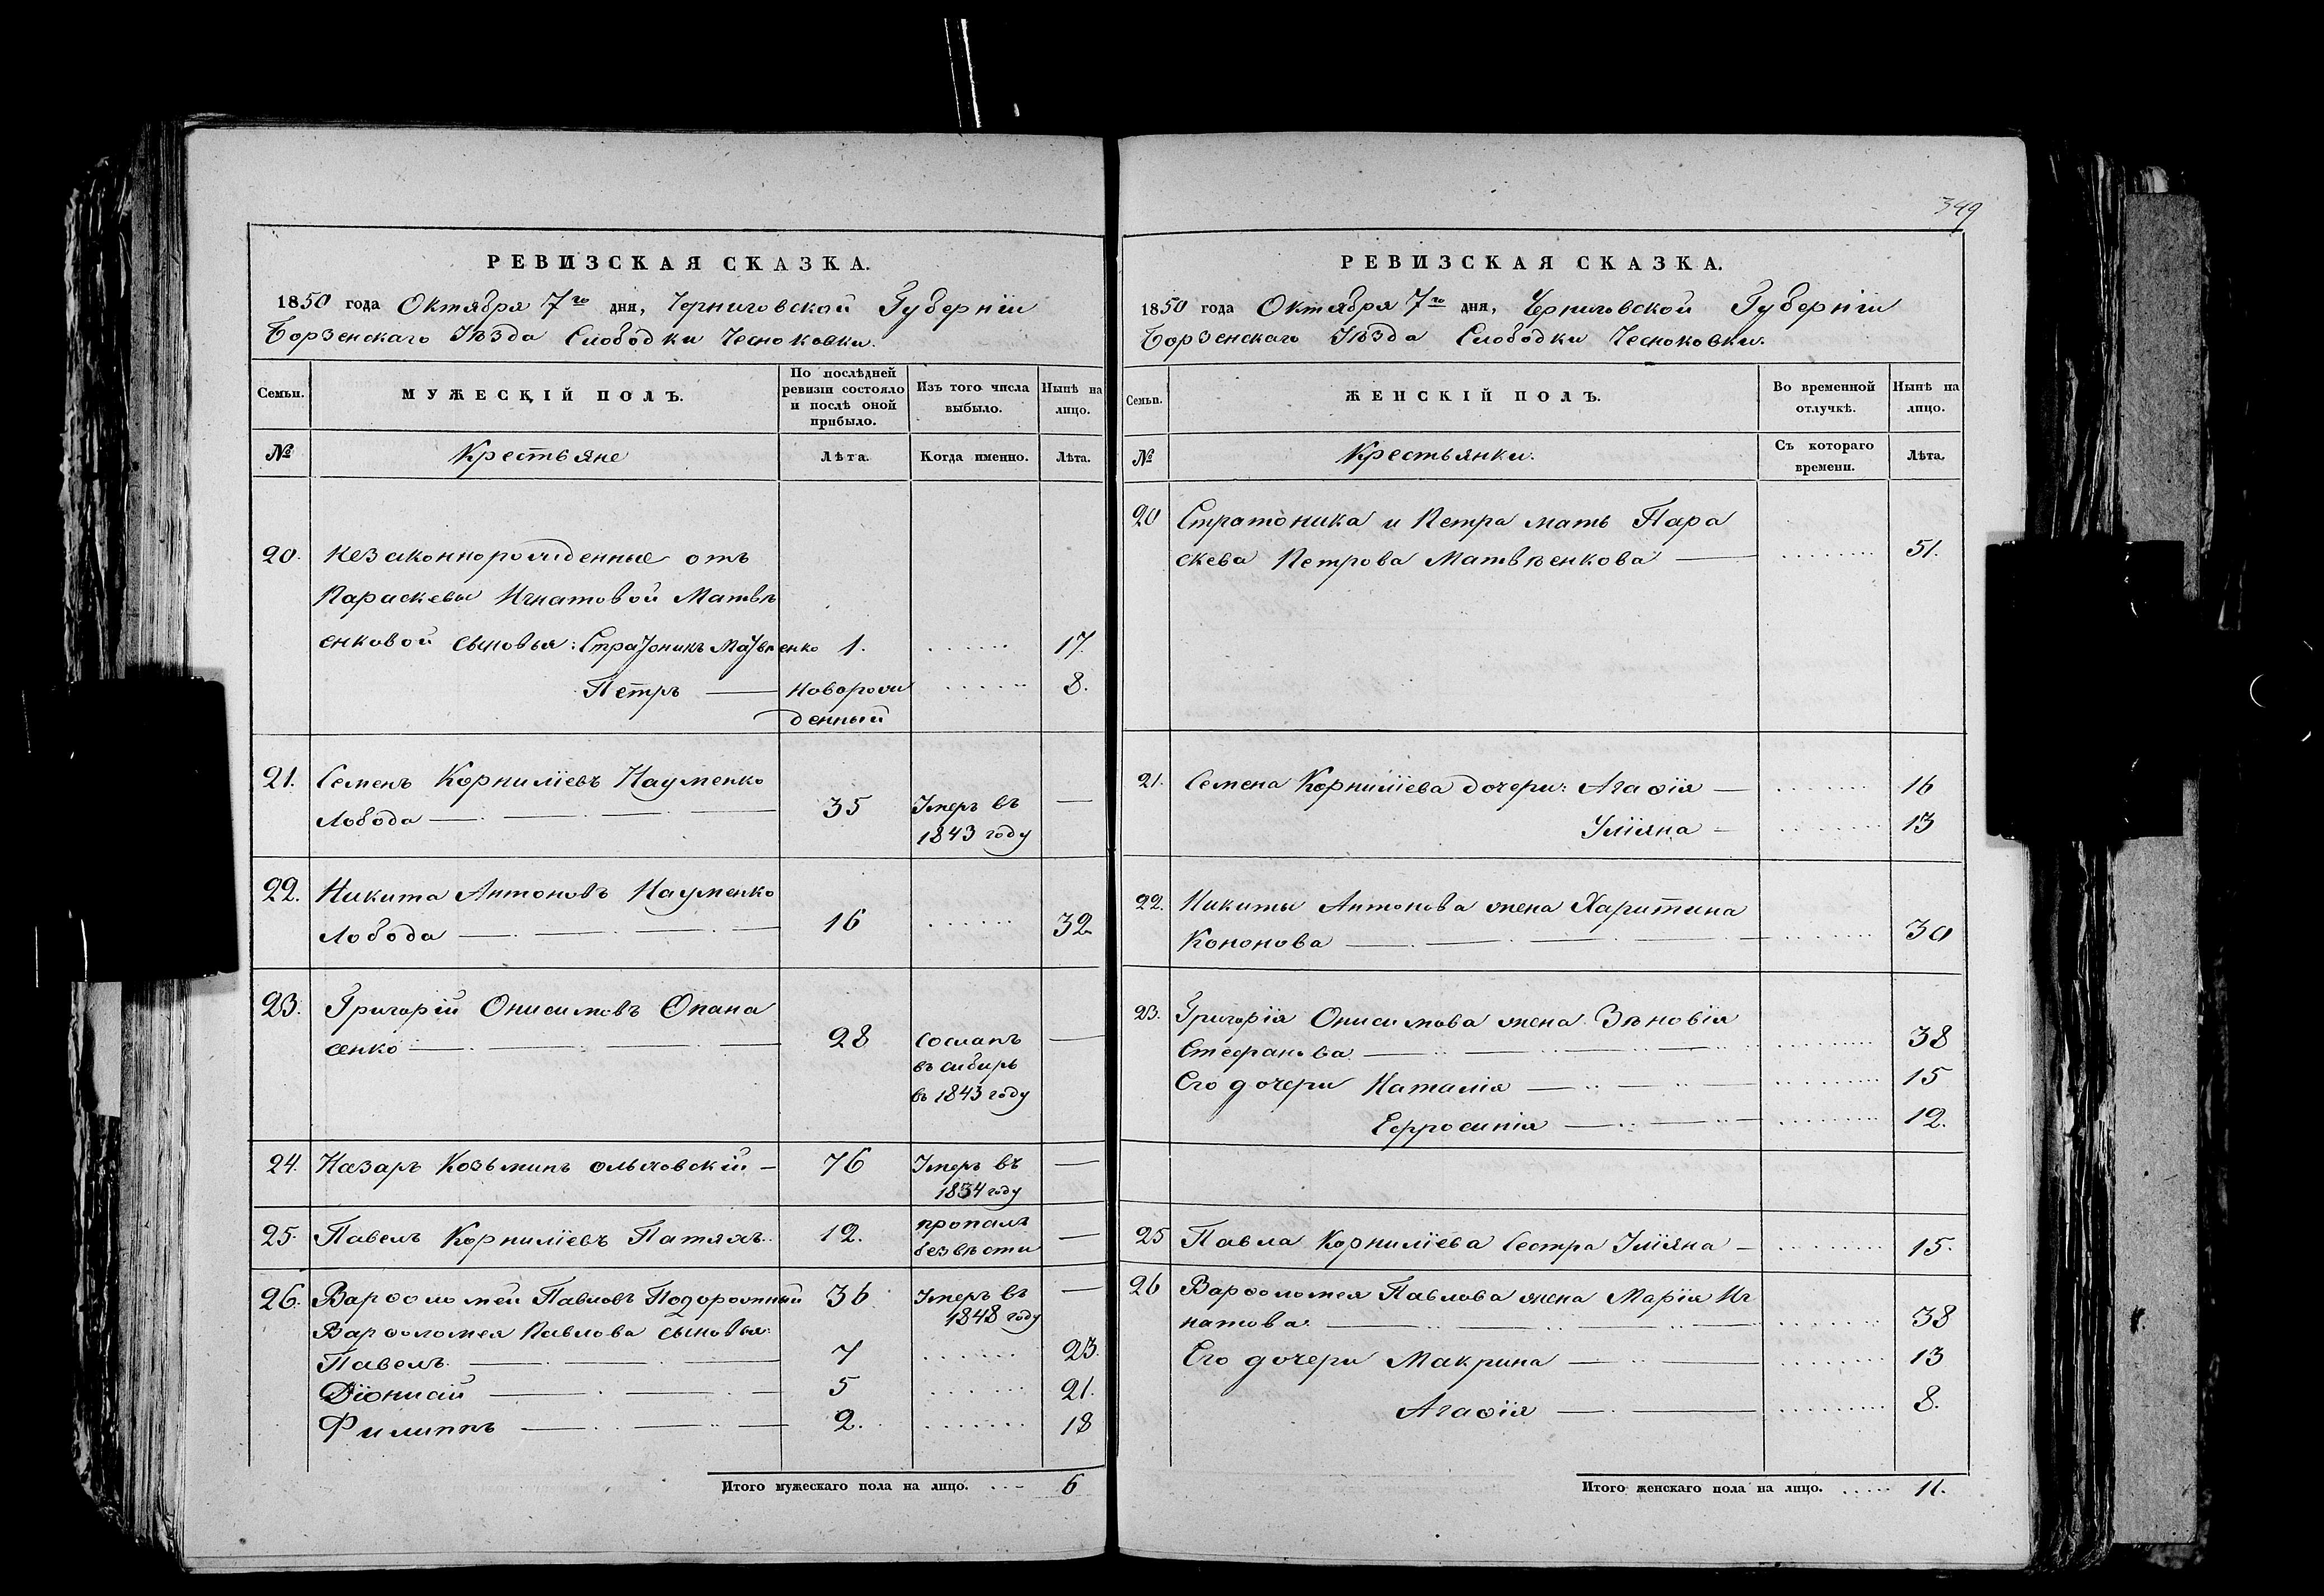 РЕВИЗСКАЯ СКАЗКА.
1850 года Октября 7го дня, Черниговской Губерніи
Борзенскаго Уѣзда Слободки Чесноковки.
Семьи.
МУЖЕСКІЙ ПОЛЪ.
По послѣдней
ревизіи состояло
и послѣ оной
прибыло.
Изъ того числа
выбыло.
Нынѣ на
лицо.
№
Крестьяне
Лѣта.
Когда именно.
Лѣта.
20. Незаконнорожденные отъ
Параскевы Игнатовой Матвѣ
енковой сыновья: Стратоникъ Матвѣенко 1. 17.
Петръ новорож 8.
денный
21. Семенъ Корниліевъ Науменко
Лобода 35 Умеръ въ
1843 году
22. Никита Антоновъ Науменко
Лобода 16 32
23. Григорій Онисимовъ Опана
сенко 28 Сосланъ
въ сибирь
въ 1843 году
24. Назаръ Козьминъ ольховскій 76 Умеръ въ
1834 году
25. Павелъ Корниліевъ Патяхъ 12. пропалъ
безвѣсти
26. Варѳоломей Павловъ Подорожный 36 Умеръ въ
1848 году
Варѳоломея Павлова сыновья:
Павелъ 7 23.
Діонисій 5 21.
Филиппъ 2. 18
Итого мужескаго пола на лицо. 6
349
РЕВИЗСКАЯ СКАЗКА.
1850 года Октября 7го дня, Черниговской Губерніи
Борзенскаго Уѣзда Слободки Чесноковки.
Семьи.
ЖЕНСКІЙ ПОЛЪ.
Во временной
отлучкѣ.
Нынѣ на
лицо.
№
Крестьянки.
Съ котораго
времени.
Лѣта.
20 Стратоника и Петра мать Пара
скева Петрова Матвѣенкова 51.
21. Семена Корниліева дочери: Агаѳія 16
Уліяна 13
22. Никиты Антонова жена Харитина
Кононова 30
23. Григорія Онисимова жена Зѣновія
Стефанова 38
Его дочери Наталія 15
Ефросинія 12.
25 Павла Корниліева Сестра Уліяна 15.
26 Варѳоломея Павлова жена Марія Иг
натова 38
Его дочери Макрина 13
Агаѳія 8.
Итого женскаго пола на лицо. 11.